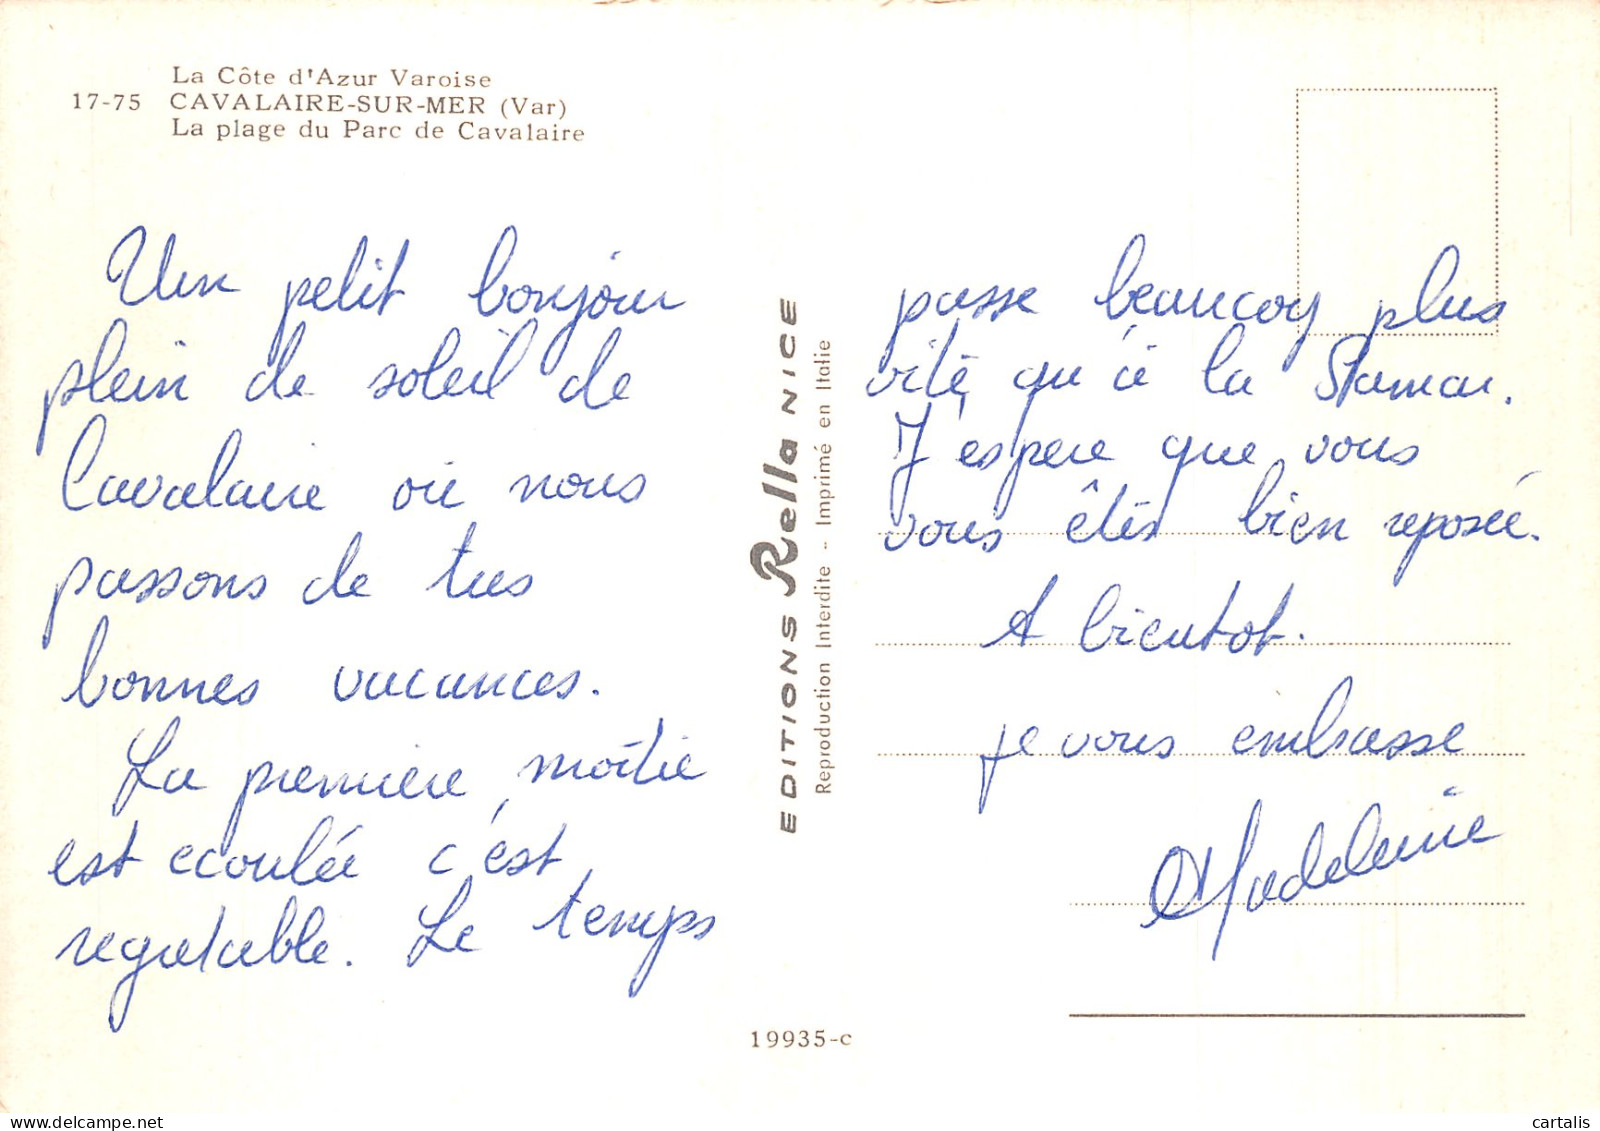 La Côte d'Azur Varoise
17-75 CAVALAIRE-SUR-MER (Var)
La plage du Parc de Cavalaire
Un petit bonjour
plein de soleil de
Cavalaire où nous
passons de tres
bonnes vacances.
La premiere moitie
est ecoulée c'est
regretable. Le temps
EDITIONS Rella NICE
Reproduction Interdite - Imprimé en Italie
19935-c
passe beaucoup plus
vite qu'à la
J'espere que vous
vous êtes bien reposée.
A bientot.
je vous embrasse
Madeleine
cartalis